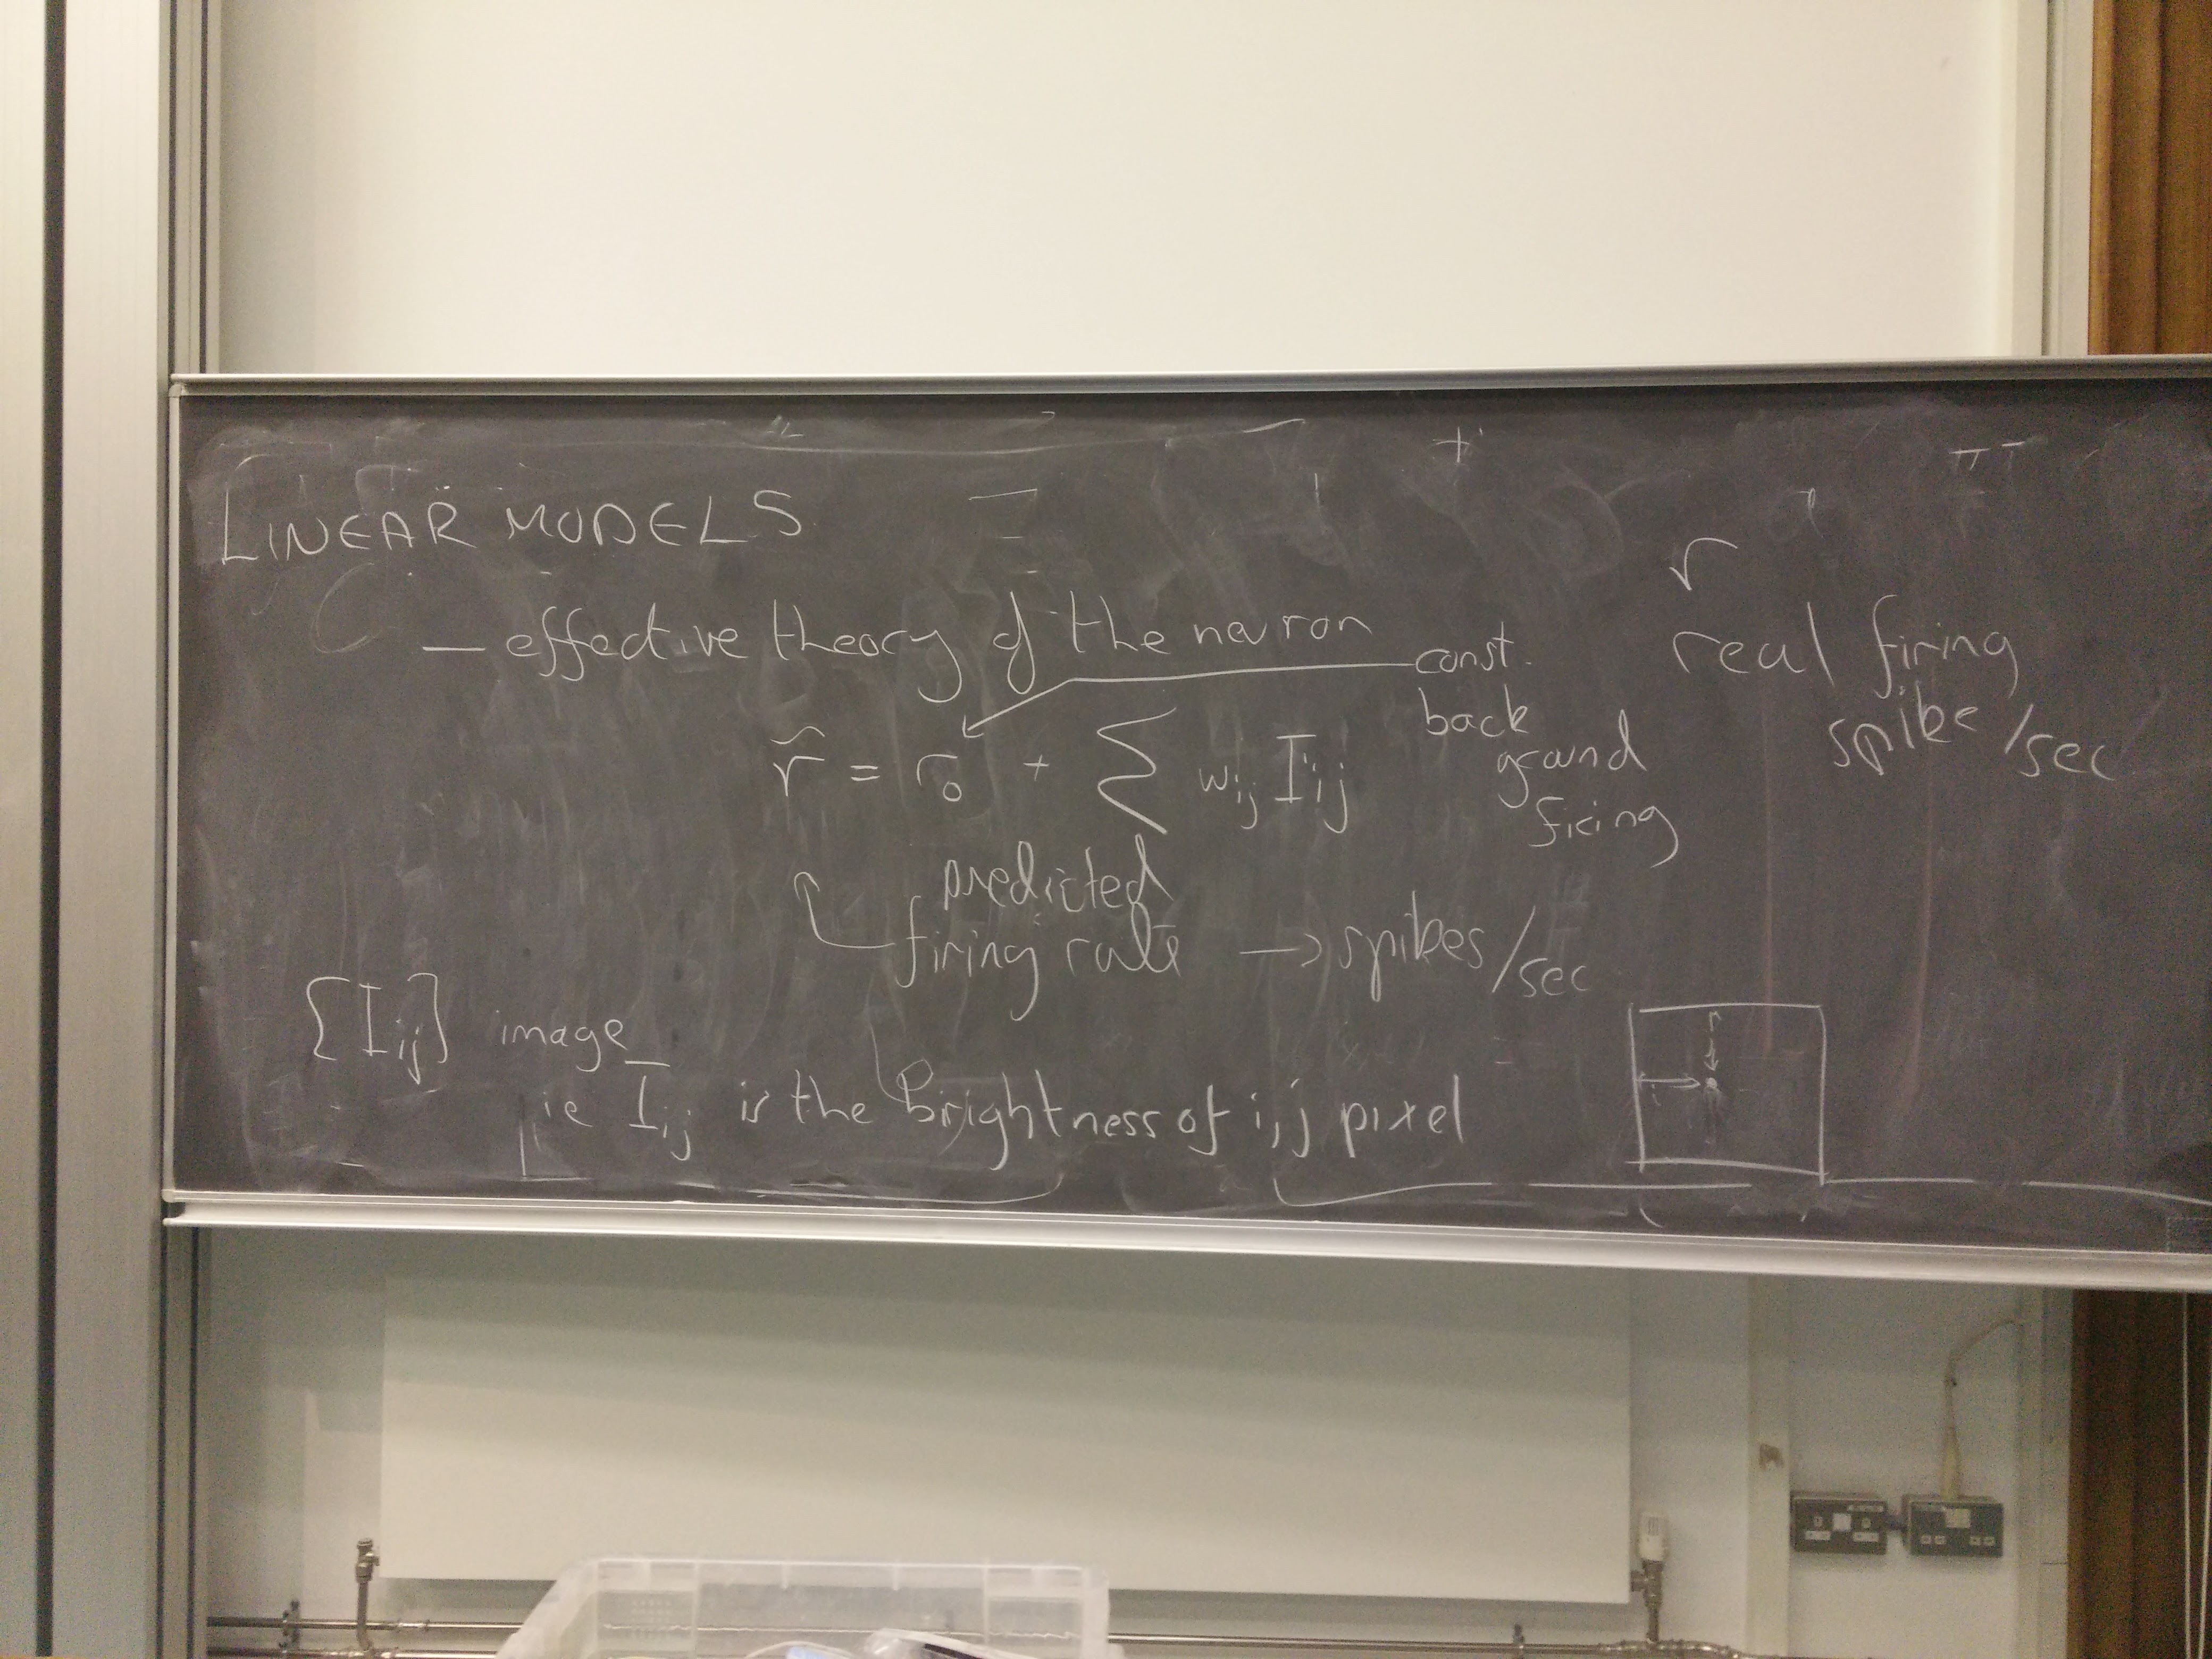 LINEAR MODELS
— effective theory of the neuron
r̃ = r₀ + ∑ wᵢⱼ Iᵢⱼ
const.
back
ground
firing
predicted
firing rate → spikes/sec
r
real firing
spike/sec
{Iᵢⱼ} image
ie Iᵢⱼ is the brightness of i,j pixel
i